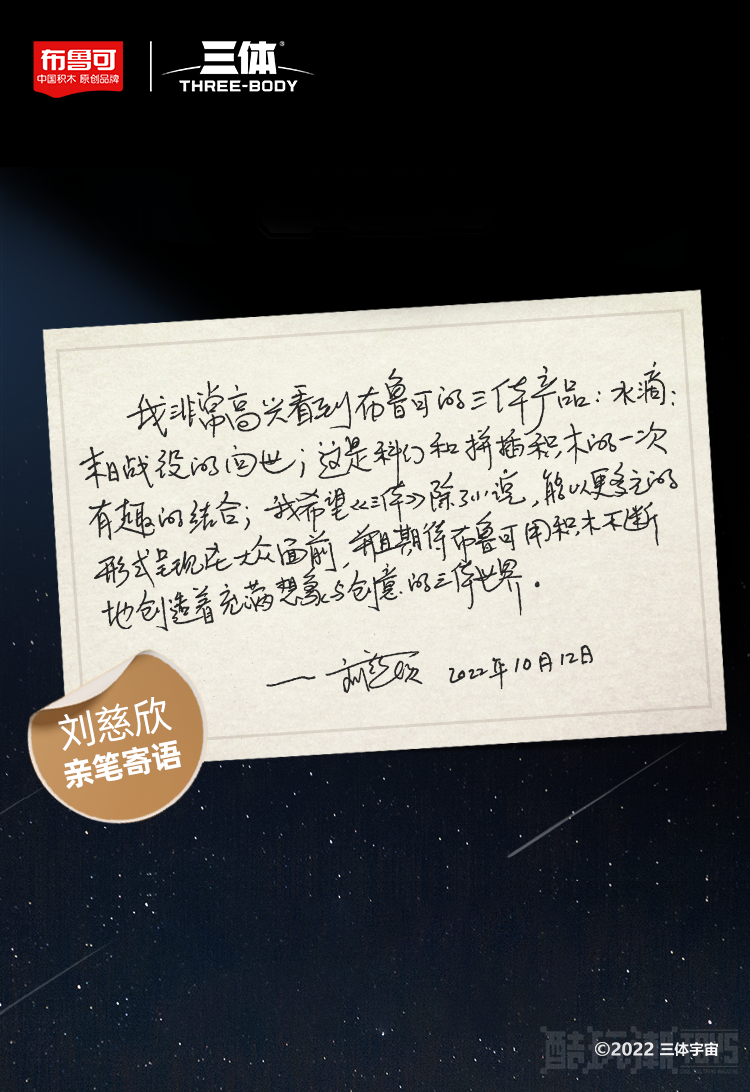 布鲁可
中国积木 原创品牌
三体®
THREE-BODY
我非常高兴看到布鲁可的三体产品：水滴：
末日战役的问世；这是科幻和拼插积木的一次
有趣的结合；我希望《三体》除了小说，能以更多元的
形式呈现在大众面前，并且期待布鲁可用积木不断
地创造着充满想象与创意的三体世界。
——刘慈欣 2022年10月12日
刘慈欣
亲笔寄语
©2022 三体宇宙